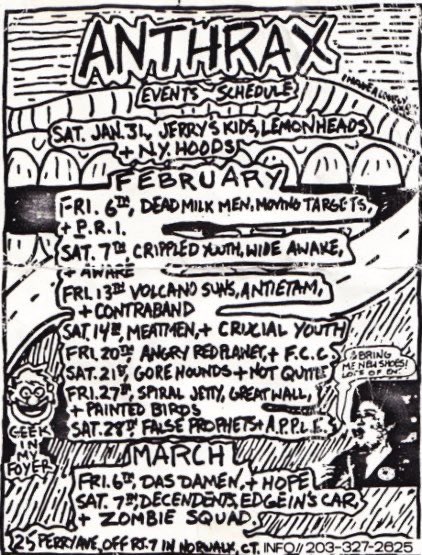 ANTHRAX
EVENTS SCHEDULE
SAT. JAN. 31, JERRY'S KIDS, LEMONHEADS
+ N.Y. HOODS
FEBRUARY
FRI. 6TH, DEAD MILK MEN, MOVING TARGETS,
+ P.R.I.
SAT. 7TH CRIPPLED YOUTH, WIDE AWAKE,
+ AWARE
FRI. 13TH VOLCANO SUNS, ANTIETAM,
+ CONTRABAND
SAT. 14TH, MEATMEN, + CRUCIAL YOUTH
FRI. 20TH ANGRY RED PLANET, + F.C.C.
SAT. 21ST, GORE HOUNDS + NOT QUITE
FRI. 27TH, SPIRAL JETTY, GREAT WALL,
+ PAINTED BIRDS
SAT. 28TH FALSE PROPHETS + A.P.P.L.E.
BRING
ME NEW SHOES!
LOTS OF
GEEK
IN
MY
FOYER
MARCH
FRI. 6TH, DAS DAMEN, + HOPE
SAT. 7TH, DECENDENTS, EDGE IN'S CAR,
+ ZOMBIE SQUAD
25 PERRY AVE, OFF RT. 7 IN NORWALK, CT. INFO// 203-327-2625